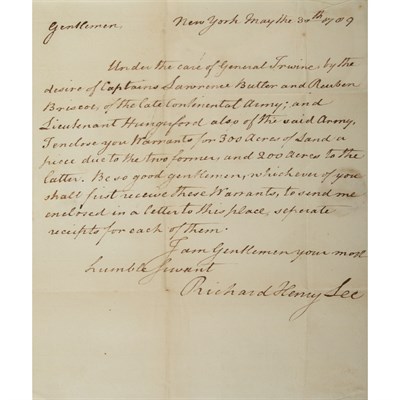 Gentlemen, New York May the 30th 1789
Under the care of General Irwine, by the
desire of Captains Lawrence Butler and Reuben
Briscoe, of the late Continental Army; and
Lieutenant Hungerford also of the said Army,
I enclose you Warrants for 300 Acres of Land a
piece due to the two former, and 200 Acres to the
latter. Be so good gentlemen, whichever of you
shall first receive these Warrants, to send me
enclosed in a letter to this place, seperate
receipts for each of them.
I am Gentlemen your most
humble servant
Richard Henry Lee